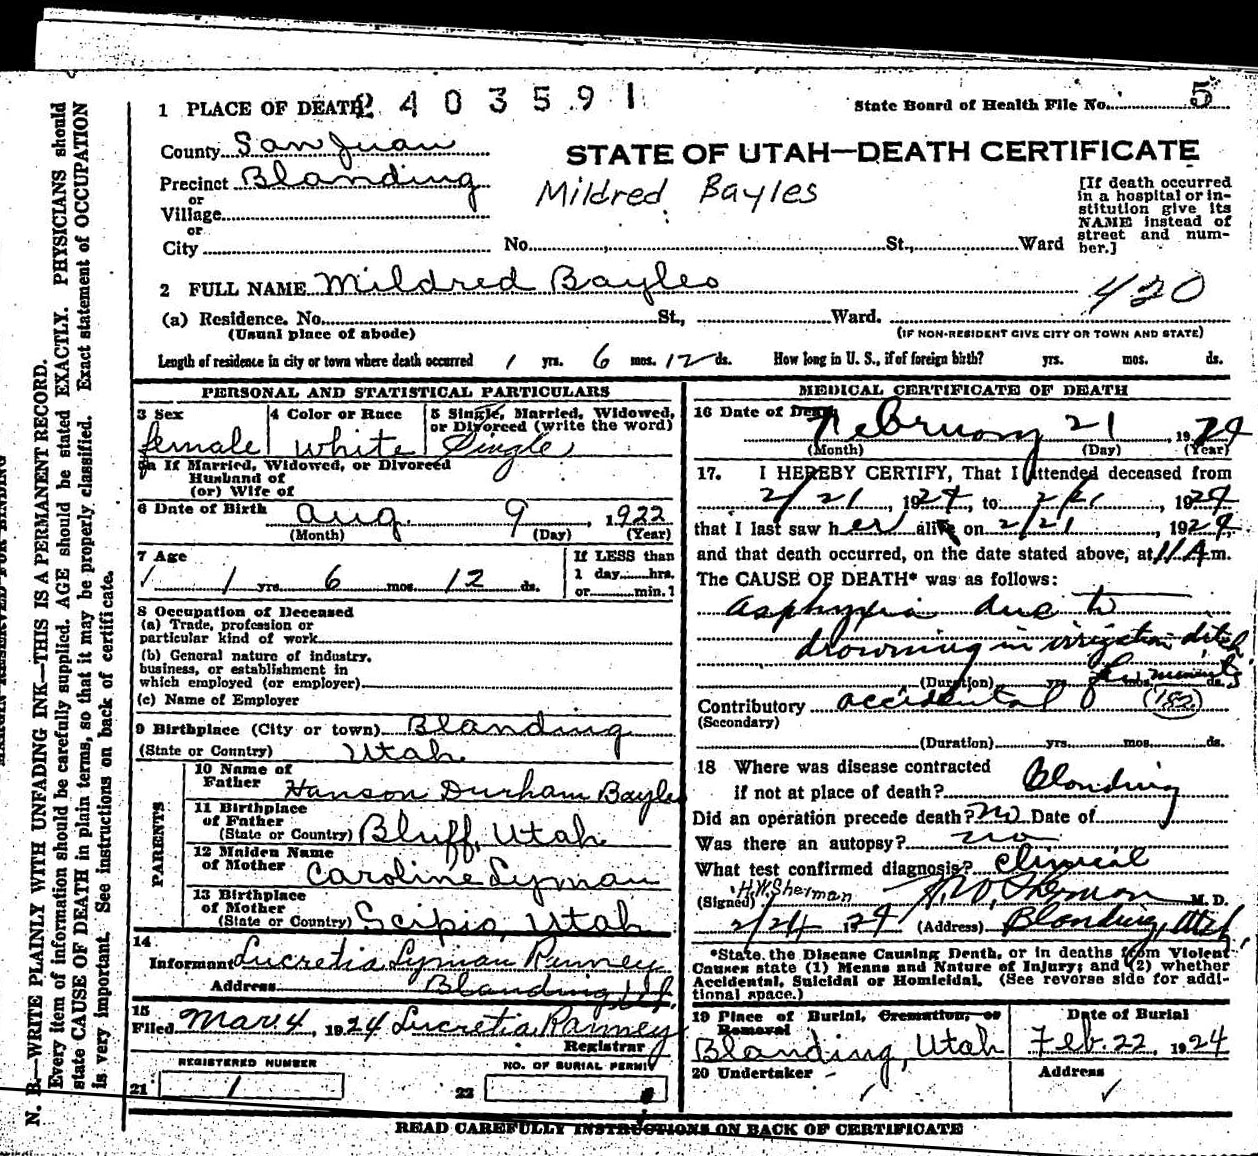 1 PLACE OF DEATH 2 4 0 3 5 9 1
State Board of Health File No. 5
County San Juan
STATE OF UTAH—DEATH CERTIFICATE
Precinct Blanding
or
Village
or
City
Mildred Bayles
No. St., Ward
[If death occurred
in a hospital or in-
stitution give its
NAME instead of
street and num-
ber.]
2 FULL NAME Mildred Bayles
420
(a) Residence. No. St., Ward.
(Usual place of abode)
(IF NON-RESIDENT GIVE CITY OR TOWN AND STATE)
Length of residence in city or town where death occurred 1 yrs. 6 mos. 12 ds. How long in U. S., if of foreign birth? yrs. mos. ds.
PERSONAL AND STATISTICAL PARTICULARS
3 Sex female
4 Color or Race White
5 Single, Married, Widowed,
or Divorced (write the word)
Single
5a If Married, Widowed, or Divorced
Husband of
(or) Wife of
6 Date of Birth Aug. 9, 1922
(Month) (Day) (Year)
7 Age
1 yrs. 6 mos. 12 ds.
If LESS than
1 day hrs.
or min.?
8 Occupation of Deceased
(a) Trade, profession or
particular kind of work
(b) General nature of industry,
business, or establishment in
which employed (or employer)
(c) Name of Employer
9 Birthplace (City or town) Blanding
(State or Country) Utah
PARENTS
10 Name of
Father Hanson Durham Bayles
11 Birthplace
of Father
(State or Country) Bluff, Utah
12 Maiden Name
of Mother Caroline Lyman
13 Birthplace
of Mother
(State or Country) Scipio, Utah
14
Informant Lucretia Lyman Ranney
Address Blanding Ut.
15
Filed Mar. 4, 1924 Lucretia Ranney
Registrar
REGISTERED NUMBER
21 1
NO. OF BURIAL PERMIT
22
MEDICAL CERTIFICATE OF DEATH
16 Date of Death
February 21, 1924
(Month) (Day) (Year)
17. I HEREBY CERTIFY, That I attended deceased from
2/21, 1924, to 2/21, 1924
that I last saw her alive on 2/21, 1924,
and that death occurred, on the date stated above, at 11 A m.
The CAUSE OF DEATH* was as follows:
Asphyxia due to
drowning in irrigation ditch
(Duration) yrs. mos. ds. few minutes
Contributory accidental (182)
(Secondary)
(Duration) yrs. mos. ds.
18 Where was disease contracted
if not at place of death? Blanding
Did an operation precede death? no Date of
Was there an autopsy? no
What test confirmed diagnosis? clinical
H.W. Sherman
(Signed) M. D.
2/24 1924 (Address) Blanding, Utah
*State the Disease Causing Death, or in deaths from Violent
Causes state (1) Means and Nature of Injury; and (2) whether
Accidental, Suicidal or Homicidal. (See reverse side for addi-
tional space.)
19 Place of Burial, Cremation, or
Removal
Blanding, Utah
Date of Burial
Feb. 22, 1924
20 Undertaker
Address
READ CAREFULLY INSTRUCTIONS ON BACK OF CERTIFICATE
MARGIN RESERVED FOR BINDING
N. B.—WRITE PLAINLY WITH UNFADING INK—THIS IS A PERMANENT RECORD.
Every item of information should be carefully supplied. AGE should be stated EXACTLY. PHYSICIANS should
state CAUSE OF DEATH in plain terms, so that it may be properly classified. Exact statement of OCCUPATION
is very important. See instructions on back of certificate.